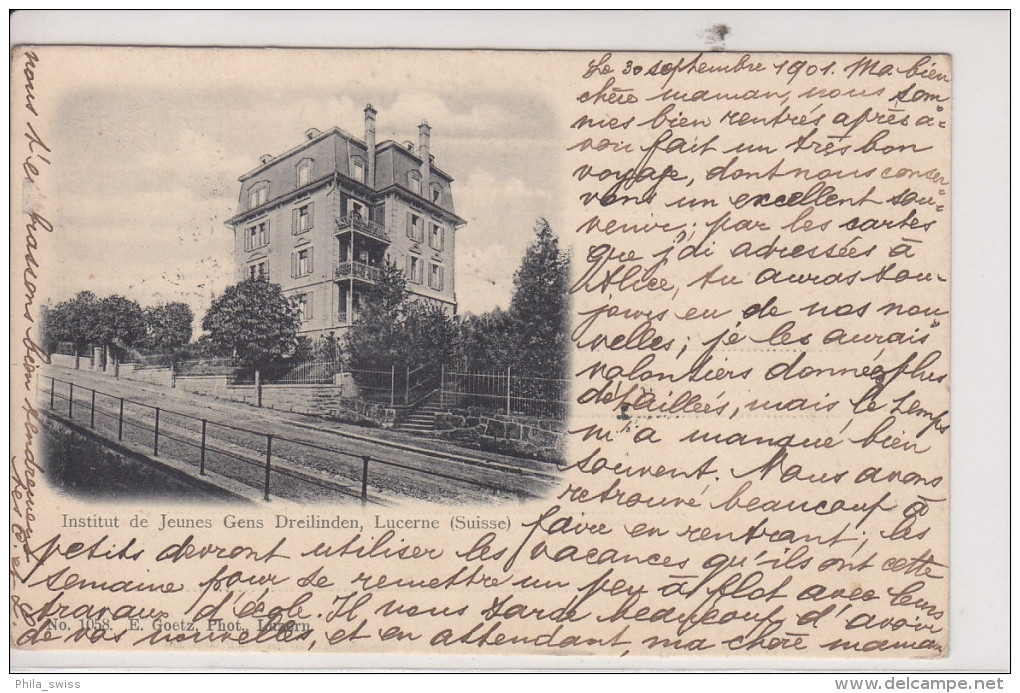 Le 30 septembre 1901. Ma bien
chère maman, nous som=
mes bien rentrés après a=
voir fait un très bon
voyage, dont nous conser=
vons un excellent sou=
venir; par les cartes
que j'ai adressées à
Alice, tu auras tou=
jours eu de nos nou=
velles; je les aurais
volontiers données plus
détaillées, mais le temps
m'a manqué bien
souvent. Nous avons
retrouvé beaucoup à
faire en rentrant; les
petits devront utiliser les vacances qu'ils ont cette
semaine pour se remettre un peu à flot avec leurs
travaux d'école. Il nous tarde beaucoup d'avoir
de vos nouvelles, et en attendant, ma chère maman
nous t'embrassons bien tendrement
Institut de Jeunes Gens Dreilinden, Lucerne (Suisse)
No. 1058. E. Goetz, Phot., Luzern.
Phila_swiss
www.delcampe.net